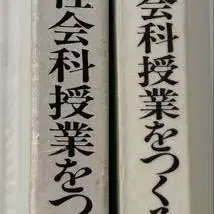 社会科授業をつ
会科授業をつくる